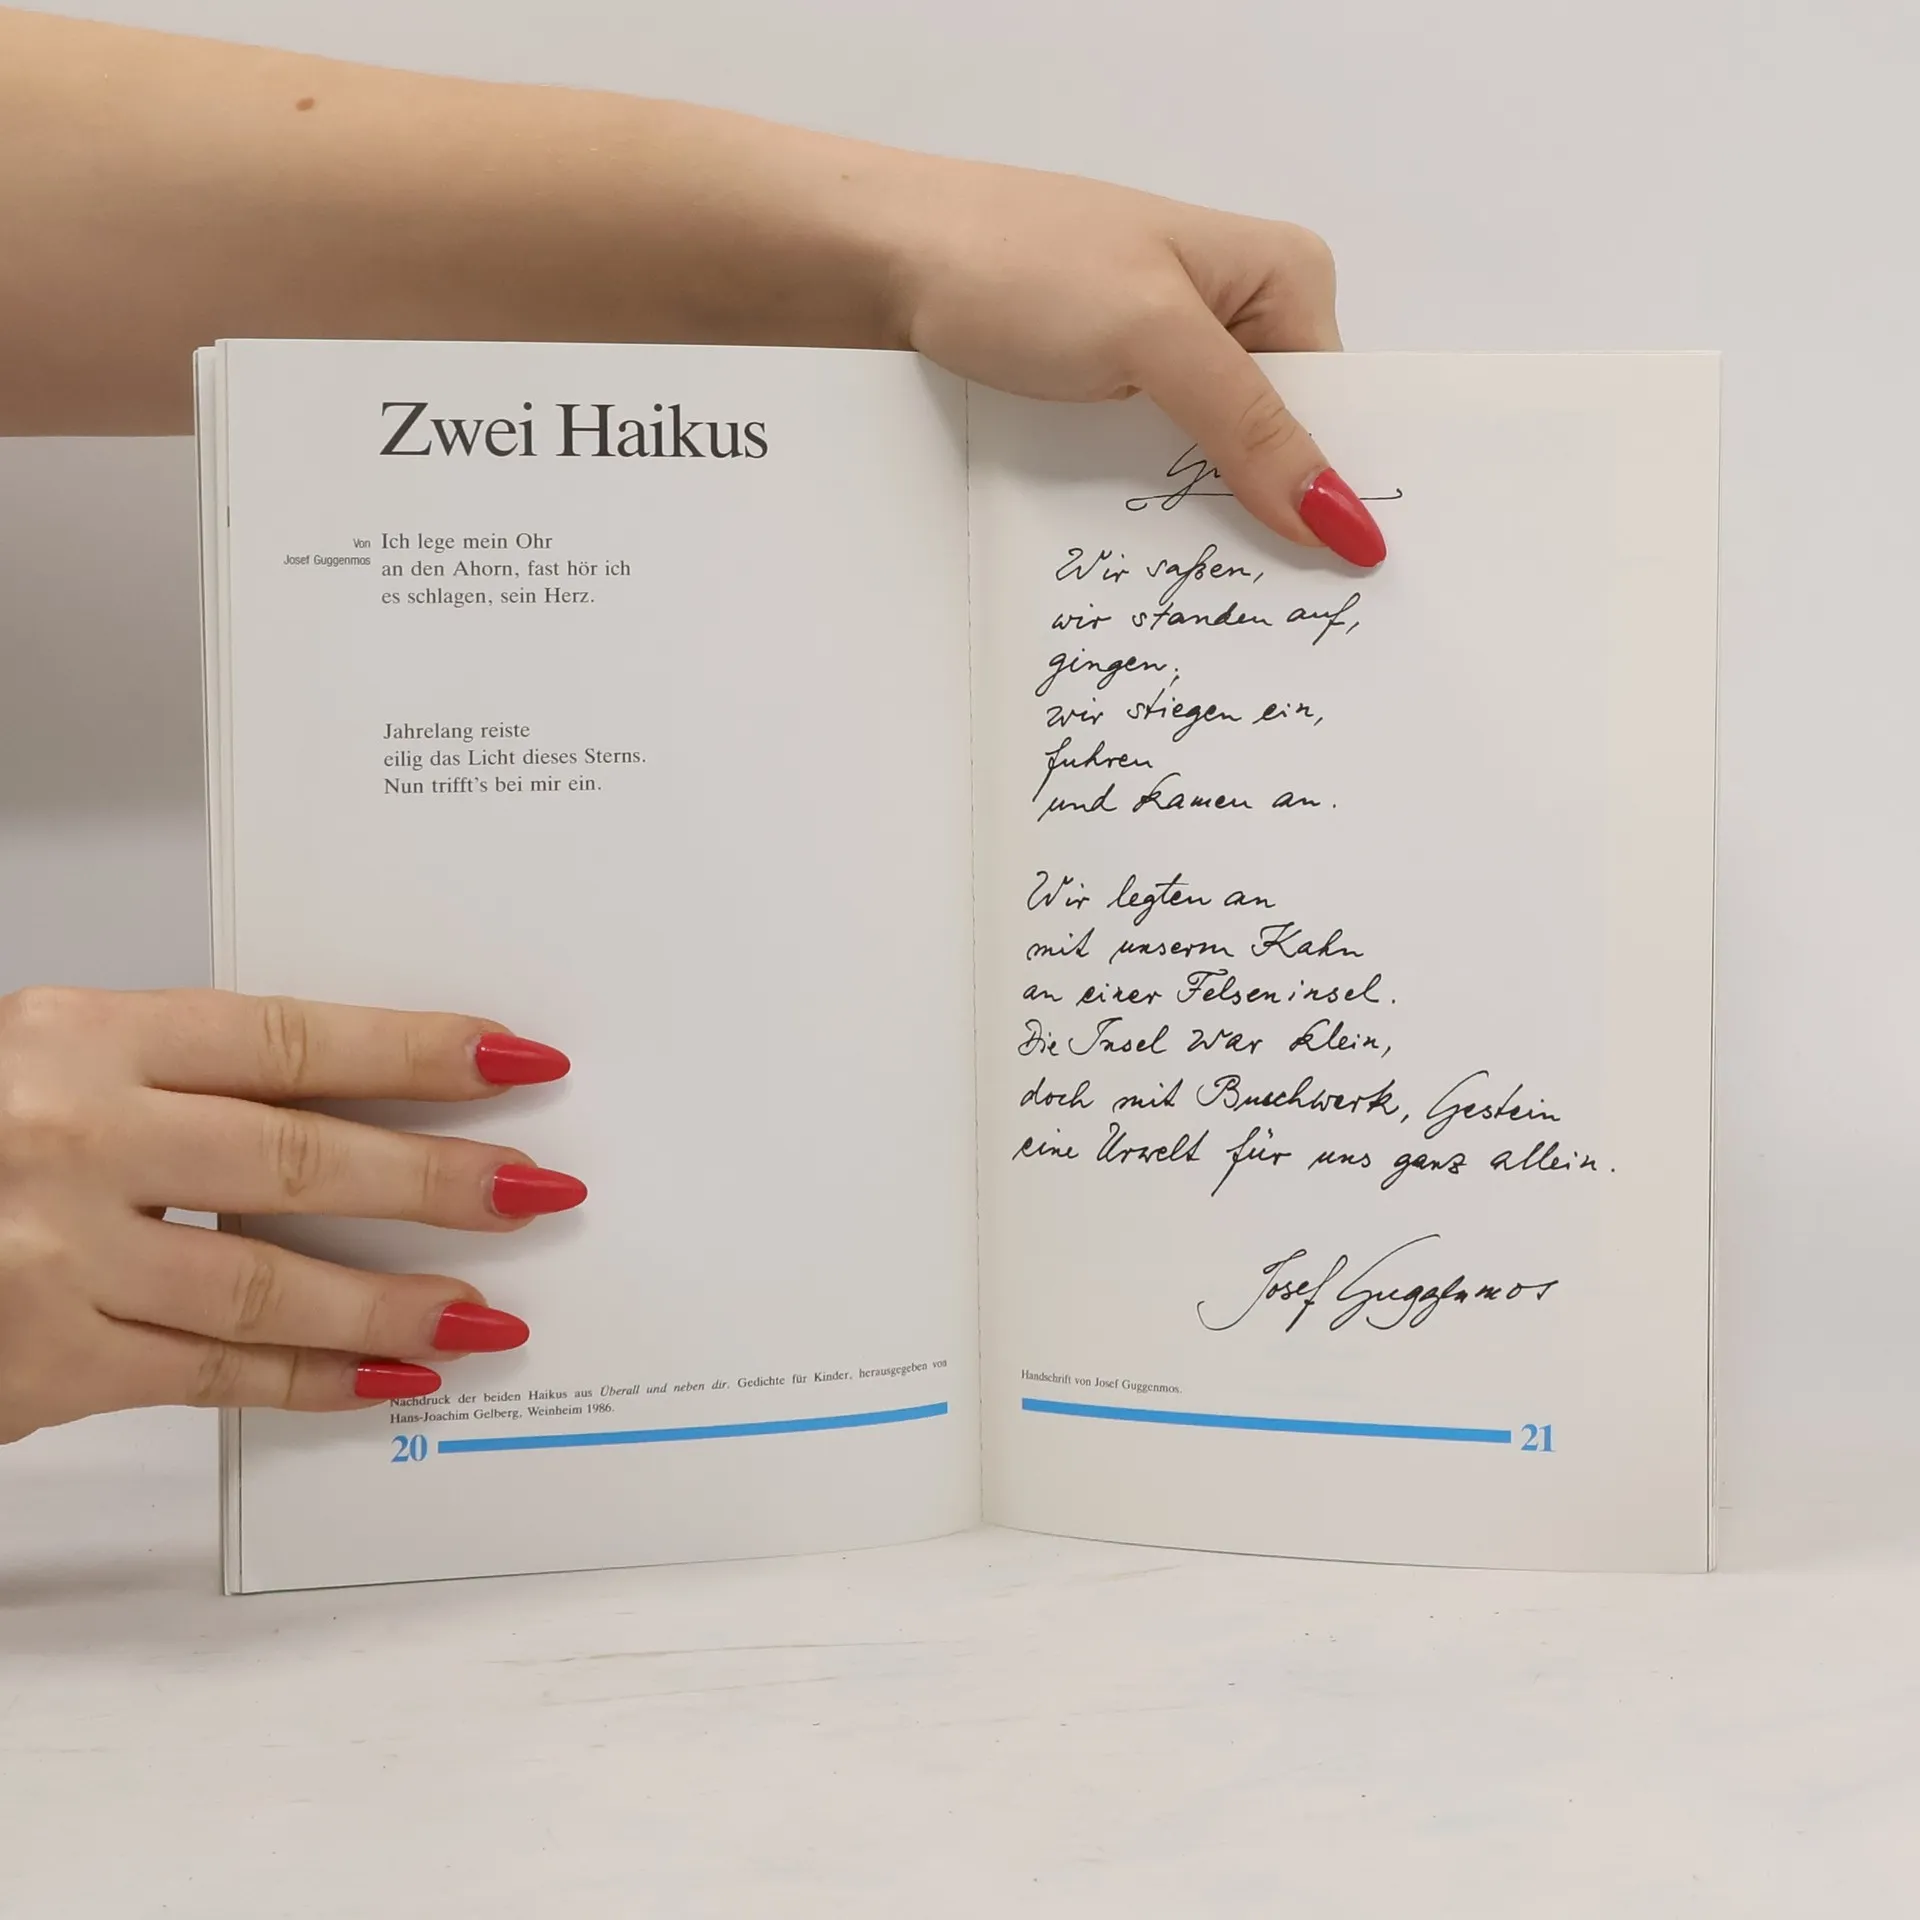 Zwei Haikus
Von
Josef Guggenmos
Ich lege mein Ohr
an den Ahorn, fast hör ich
es schlagen, sein Herz.
Jahrelang reiste
eilig das Licht dieses Sterns.
Nun trifft's bei mir ein.
Nachdruck der beiden Haikus aus Überall und neben dir. Gedichte für Kinder, herausgegeben von
Hans-Joachim Gelberg, Weinheim 1986.
20
Wir saßen,
wir standen auf,
gingen;
wir stiegen ein,
fuhren
und kamen an.
Wir legten an
mit unserm Kahn
an einer Felseninsel.
Die Insel war klein,
doch mit Buschwerk, Gestein
eine Urwelt für uns ganz allein.
Josef Guggenmos
Handschrift von Josef Guggenmos.
21